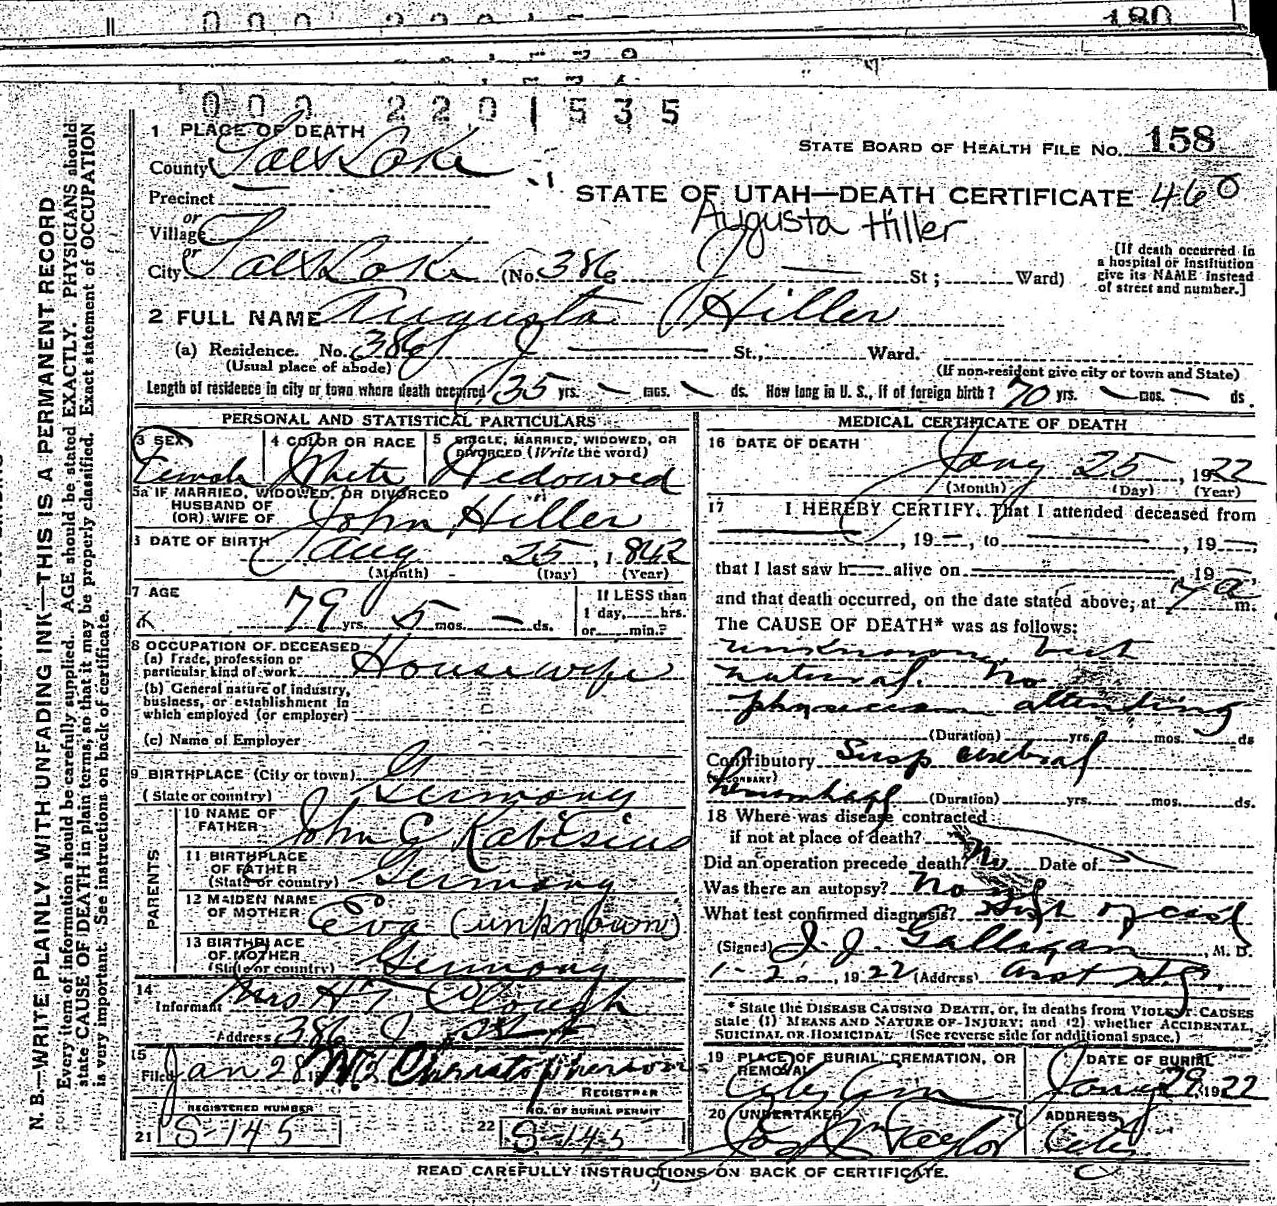 000 2201535
1 PLACE OF DEATH
County Salt Lake
STATE BOARD OF HEALTH FILE No. 158
STATE OF UTAH—DEATH CERTIFICATE 460
Precinct
or
Village
Augusta Hiller
or
City Salt Lake (No. 386 J St; Ward)
[If death occurred in
a hospital or institution
give its NAME instead
of street and number.]
2 FULL NAME Augusta Hiller
(a) Residence. No. 386 J St., Ward.
(Usual place of abode)
(If non-resident give city or town and State)
Length of residence in city or town where death occurred 35 yrs. — mos. — ds. How long in U. S., if of foreign birth? 70 yrs. — mos. — ds.
PERSONAL AND STATISTICAL PARTICULARS
3 SEX
Female
4 COLOR OR RACE
White
5 SINGLE, MARRIED, WIDOWED, OR
DIVORCED (Write the word)
Widowed
5a IF MARRIED, WIDOWED, OR DIVORCED
HUSBAND OF
(OR) WIFE OF John Hiller
DATE OF BIRTH Aug 25, 1842
(Month) (Day) (Year)
7 AGE
79 yrs. 5 mos. — ds.
If LESS than
1 day, hrs.
or min.?
8 OCCUPATION OF DECEASED
(a) Trade, profession or
particular kind of work Housewife
(b) General nature of industry,
business, or establishment in
which employed (or employer)
(c) Name of Employer
9 BIRTHPLACE (City or town)
(State or country) Germany
PARENTS
10 NAME OF
FATHER John G Rabesius
11 BIRTHPLACE
OF FATHER
(State or country) Germany
12 MAIDEN NAME
OF MOTHER Eva (unknown)
13 BIRTHPLACE
OF MOTHER
(State or country) Germany
14
Informant Mrs H T Clough
Address 386 J St
15
Filed Jan 28 Christopherson
REGISTRAR
REGISTERED NUMBER
21 S-145
NO. OF BURIAL PERMIT
22 S-145
MEDICAL CERTIFICATE OF DEATH
16 DATE OF DEATH
Jany 25, 1922
(Month) (Day) (Year)
17 I HEREBY CERTIFY, That I attended deceased from
, 19 —, to , 19 —,
that I last saw h alive on 19 —
and that death occurred, on the date stated above, at 7 a m.
The CAUSE OF DEATH* was as follows:
unknown, but
natural. No
physician attending
(Duration) yrs. mos. ds
Contributory Susp cerebral
(SECONDARY)
hemorrhage (Duration) yrs. mos. ds.
18 Where was disease contracted
if not at place of death?
Did an operation precede death? No Date of
Was there an autopsy? No
What test confirmed diagnosis? Hist of case
(Signed) J. J. Galligan, M. D.
1-2 , 1922 (Address)
* State the DISEASE CAUSING DEATH, or, in deaths from VIOLENT CAUSES
state (1) MEANS AND NATURE OF INJURY; and (2) whether ACCIDENTAL,
SUICIDAL OR HOMICIDAL (See reverse side for additional space.)
19 PLACE OF BURIAL, CREMATION, OR
REMOVAL
City Cem
DATE OF BURIAL
Jany 29, 1922
20 UNDERTAKER
Jos Taylor
ADDRESS
City
READ CAREFULLY INSTRUCTIONS ON BACK OF CERTIFICATE.
N. B.—WRITE PLAINLY WITH UNFADING INK—THIS IS A PERMANENT RECORD
Every item of information should be carefully supplied. AGE should be stated EXACTLY. PHYSICIANS should
state CAUSE OF DEATH in plain terms, so that it may be properly classified. Exact statement of OCCUPATION
is very important. See instructions on back of certificate.